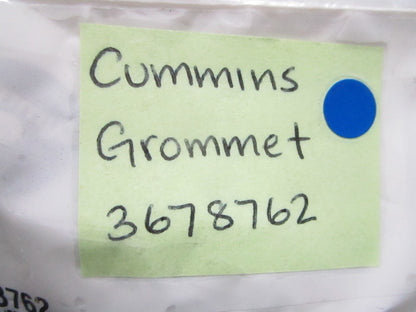 Cummins
Grommet
3678762
8762